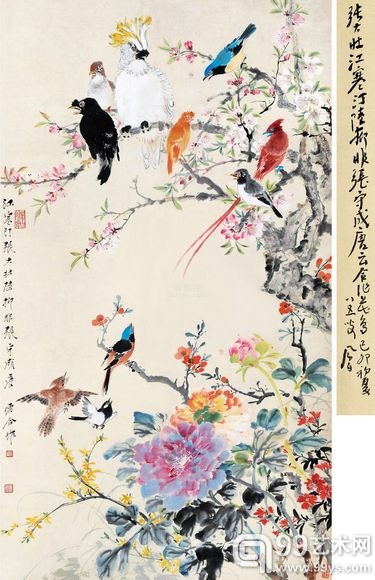 張大壯江寒汀陸抑非張守成唐云合作花鳥己卯初夏
江寒汀張大壯陸抑非張守成唐
雲合作
99艺术网
www.99ys.com